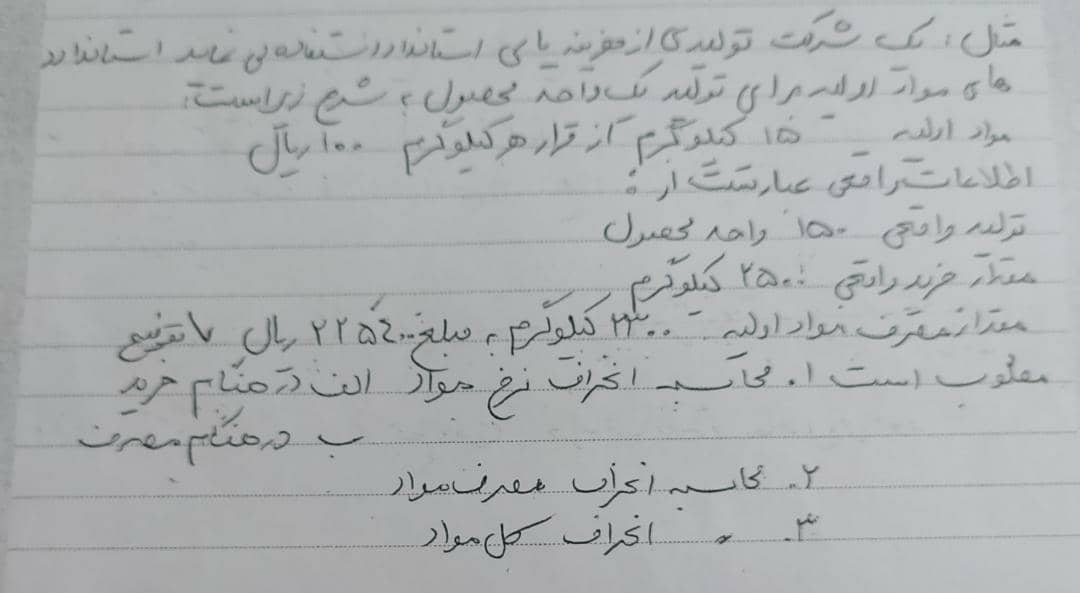 مثال: یک شرکت تولیدی از هزینه یابی استاندارد استفاده می نماید استاندارد
های مواد اولیه برای تولید یک واحد محصول به شرح زیر است:
مواد اولیه ۱۵ کیلوگرم از قرار هر کیلوگرم ۱۰۰ ریال
اطلاعات واقعی عبارتست از:
تولید واقعی ۱۵۰ واحد محصول
مقدار خرید واقعی ۲۵۰۰ کیلوگرم
مقدار مصرف مواد اولیه ۲۳۰۰ کیلوگرم به مبلغ ۲۲۵۴۰۰ ریال
مطلوب است ۱. محاسبه انحراف نرخ مواد الف در هنگام خرید
ب در هنگام مصرف
۲. محاسبه انحراف مصرف مواد
۳. " انحراف کل مواد